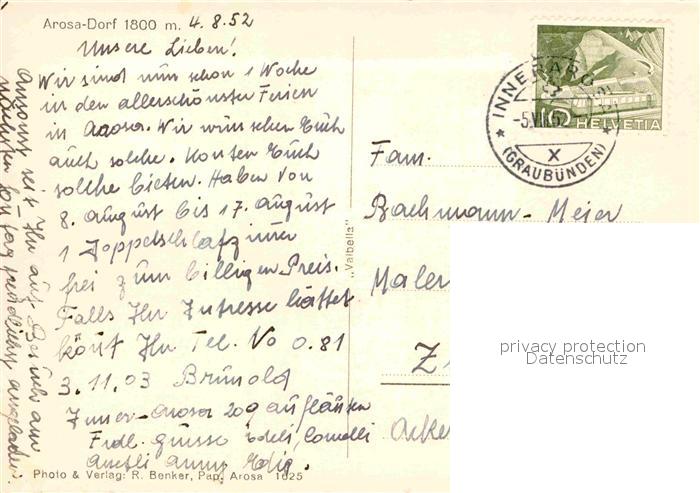 Arosa-Dorf 1800 m. 4.8.52
Unsere Lieben!
Wir sind nun schon 1 Woche
in den allerschönster Ferien
in Arosa. Wir wünschen Euch
auch solche. Konten Euch
solche bieten. Haben von
8. august bis 17. august
1 Doppelschlafzimer
frei zum billigen Preis.
Falls Ihr Intresse hättet
könt Ihr Tel. No 0.81
3.11.03 Brunold
Inner-Arosa
Frdl. grüsse
Ansonst seit Ihr auf Besuch am
nächsten
Photo & Verlag: R. Benker, Pap. Arosa 1625
"Valbella"
INNERAROSA
-5.VIII.52
X
* (GRAUBÜNDEN) *
5
HELVETIA
Fam.
Bachmann-Meier
Maler
Z
Acke
privacy protection
Datenschutz